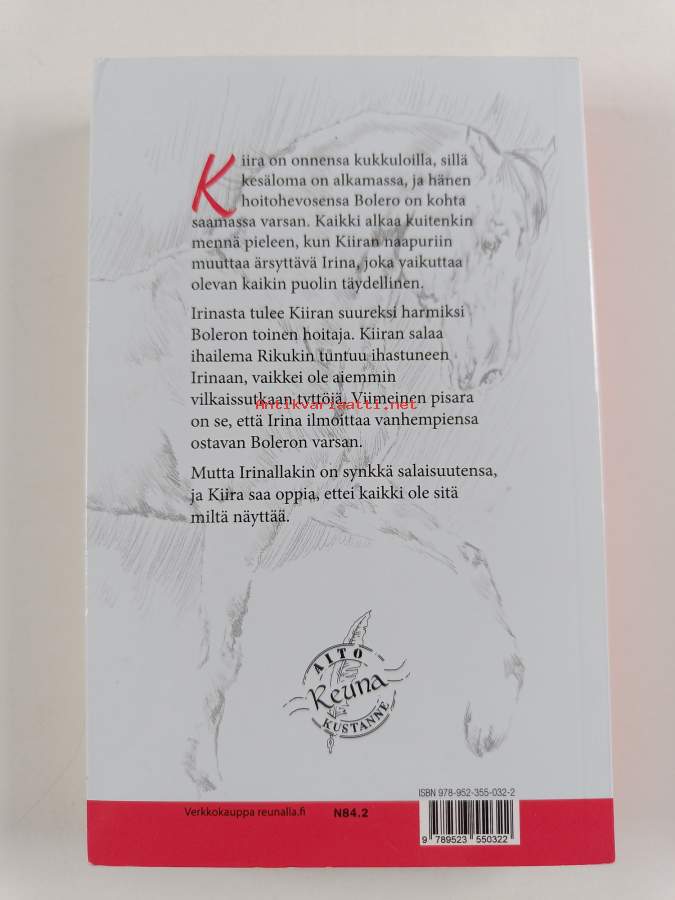 Kiira on onnensa kukkuloilla, sillä
kesäloma on alkamassa, ja hänen
hoitohevosensa Bolero on kohta
saamassa varsan. Kaikki alkaa kuitenkin
mennä pieleen, kun Kiiran naapuriin
muuttaa ärsyttävä Irina, joka vaikuttaa
olevan kaikin puolin täydellinen.
Irinasta tulee Kiiran suureksi harmiksi
Boleron toinen hoitaja. Kiiran salaa
ihailema Rikukin tuntuu ihastuneen
Irinaan, vaikkei ole aiemmin
vilkaissutkaan tyttöjä. Viimeinen pisara
Antikvariaatti.net
on se, että Irina ilmoittaa vanhempiensa
ostavan Boleron varsan.
Mutta Irinallakin on synkkä salaisuutensa,
ja Kiira saa oppia, ettei kaikki ole sitä
miltä näyttää.
AITO
Reuna
KUSTANNE
ISBN 978-952-355-032-2
Verkkokauppa reunalla.fi N84.2
9 789523 550322